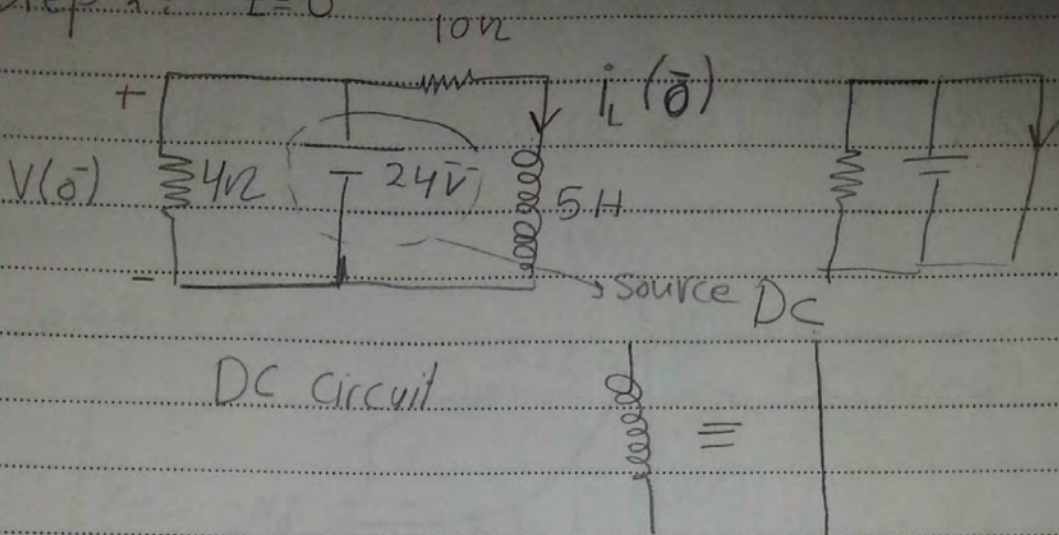 Step 1: t=0
10Ω
+
i_L (0̄)
V(0̄) 4Ω 24V 5H
-
Source DC
DC Circuit
≡